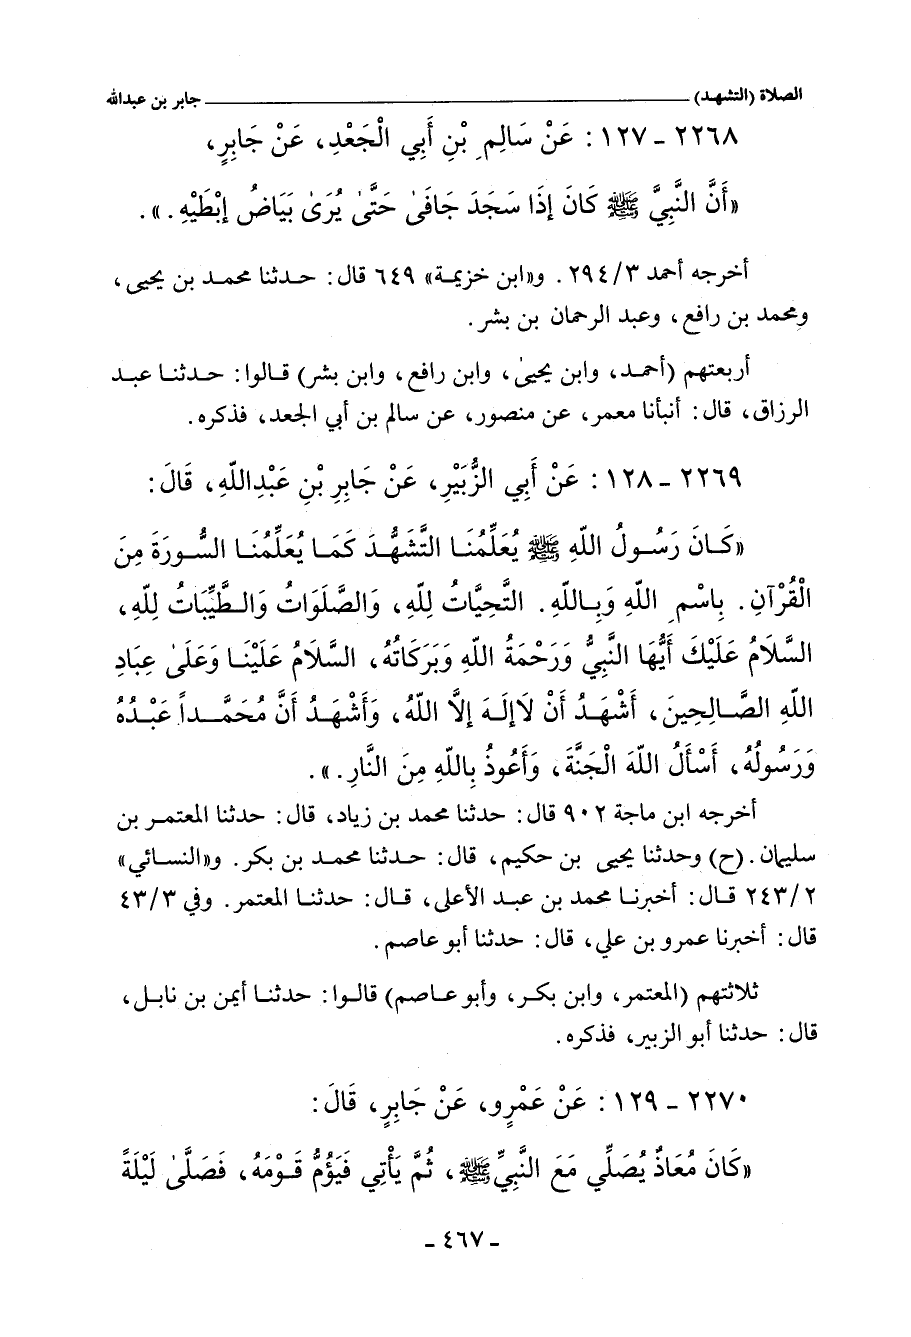 الصلاة (التشهد) جابر بن عبدالله
٢٢٦٨ - ١٢٧ : عَنْ سَالِمِ بْنِ أَبِي الْجَعْدِ، عَنْ جَابِرٍ،
«أَنَّ النَّبِيَّ ﷺ كَانَ إِذَا سَجَدَ جَافَىٰ حَتَّىٰ يُرَىٰ بَيَاضُ إِبْطَيْهِ.».
أخرجه أحمد ٣/٢٩٤. و«ابن خزيمة» ٦٤٩ قال: حدثنا محمد بن يحيى،
ومحمد بن رافع، وعبد الرحمان بن بشر.
أربعتهم (أحمد، وابن يحيىٰ، وابن رافع، وابن بشر) قالوا: حدثنا عبد
الرزاق، قال: أنبأنا معمر، عن منصور، عن سالم بن أبي الجعد، فذكره.
٢٢٦٩ - ١٢٨ : عَنْ أَبِي الزُّبَيْرِ، عَنْ جَابِرِ بْنِ عَبْدِاللّهِ، قَالَ:
«كَانَ رَسُولُ اللّهِ ﷺ يُعَلِّمُنَا التَّشَهُّدَ كَمَا يُعَلِّمُنَا السُّورَةَ مِنَ
الْقُرْآنِ. بِاسْمِ اللّهِ وَبِاللّهِ. التَّحِيَّاتُ لِلّهِ، وَالصَّلَوَاتُ وَالطَّيِّبَاتُ لِلّهِ،
السَّلَامُ عَلَيْكَ أَيُّهَا النَّبِيُّ وَرَحْمَةُ اللّهِ وَبَرَكَاتُهُ، السَّلَامُ عَلَيْنَا وَعَلَىٰ عِبَادِ
اللّهِ الصَّالِحِينَ، أَشْهَدُ أَنْ لَاإِلَهَ إِلَّا اللّهُ، وَأَشْهَدُ أَنَّ مُحَمَّداً عَبْدُهُ
وَرَسُولُهُ، أَسْأَلُ اللّهَ الْجَنَّةَ، وَأَعُوذُ بِاللّهِ مِنَ النَّارِ.».
أخرجه ابن ماجة ٩٠٢ قال: حدثنا محمد بن زياد، قال: حدثنا المعتمر بن
سليمان. (ح) وحدثنا يحيى بن حكيم، قال: حدثنا محمد بن بكر. و«النسائي»
٢/٢٤٣ قال: أخبرنا محمد بن عبد الأعلى، قال: حدثنا المعتمر. وفي ٣/٤٣
قال: أخبرنا عمرو بن علي، قال: حدثنا أبو عاصم.
ثلاثتهم (المعتمر، وابن بكر، وأبو عاصم) قالوا: حدثنا أيمن بن نابل،
قال: حدثنا أبو الزبير، فذكره.
٢٢٧٠ - ١٢٩ : عَنْ عَمْرٍو، عَنْ جَابِرٍ، قَالَ:
«كَانَ مُعَاذٌ يُصَلِّي مَعَ النَّبِيِّ ﷺ، ثُمَّ يَأْتِي فَيَؤُمُّ قَوْمَهُ، فَصَلَّىٰ لَيْلَةً
- ٤٦٧ -